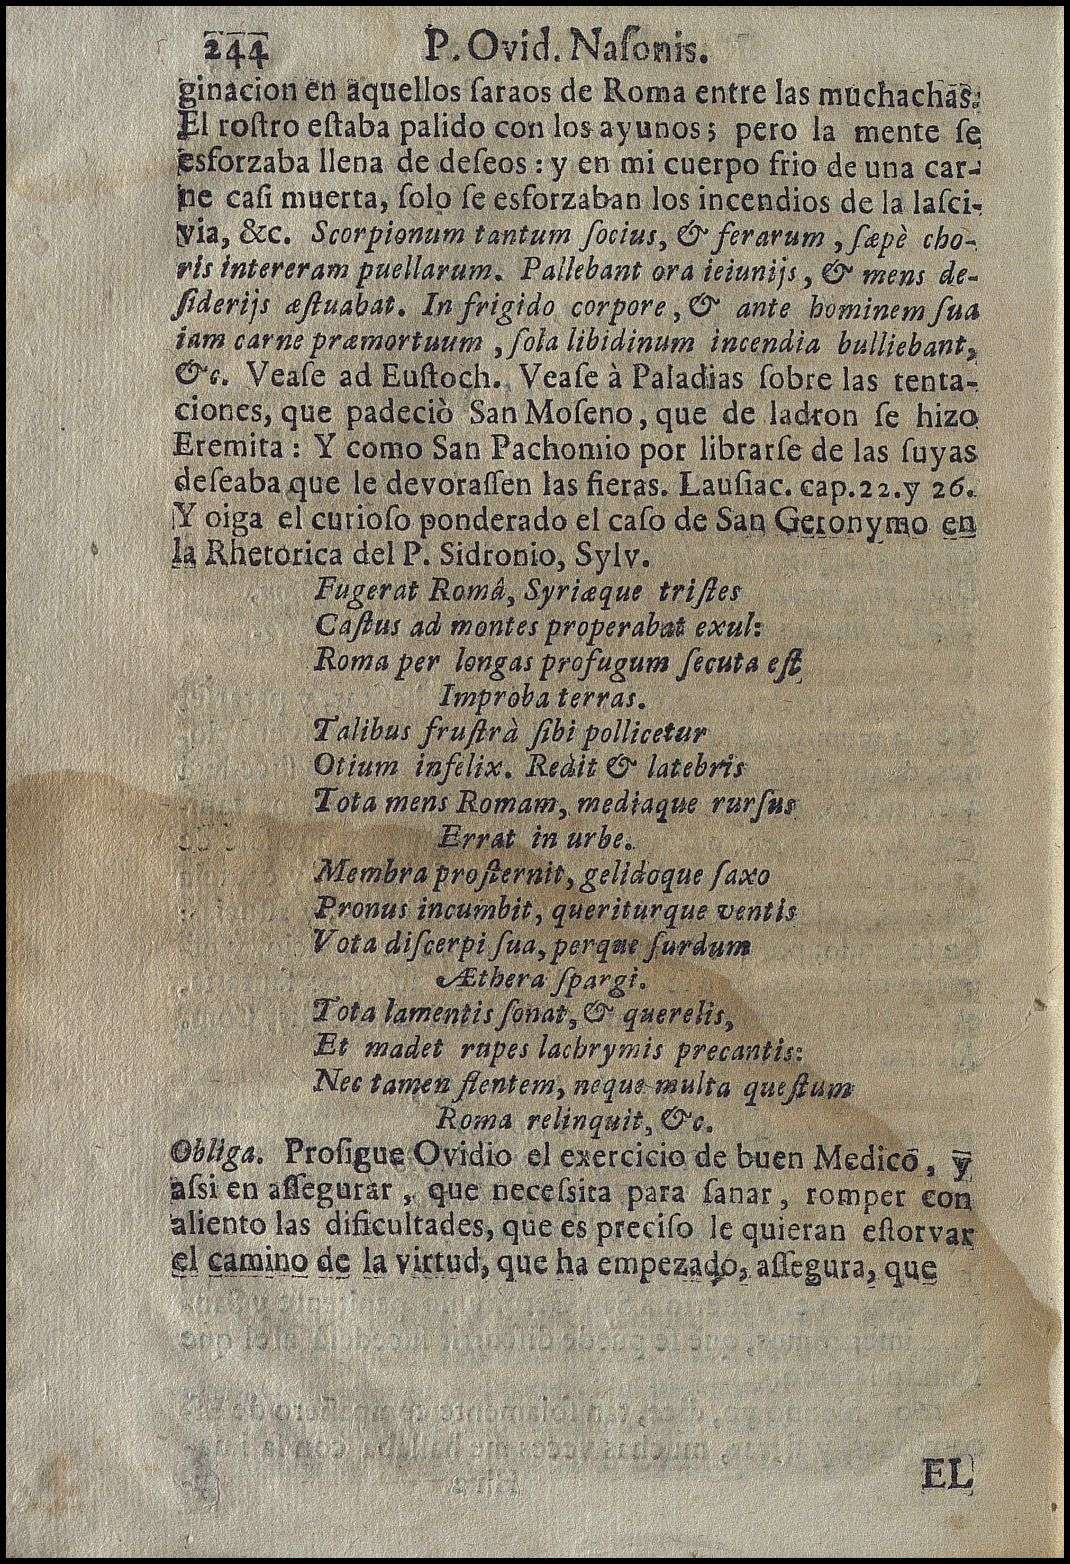 244 P. Ovid. Naſonis.
ginacion en aquellos ſaraos de Roma entre las muchachas.
El roſtro eſtaba palido con los ayunos; pero la mente ſe
esforzaba llena de deſeos: y en mi cuerpo frio de una car-
ne caſi muerta, ſolo ſe esforzaban los incendios de la laſci-
via, &c. Scorpionum tantum ſocius, & ferarum, ſæpè cho-
ris intereram puellarum. Pallebant ora ieiunijs, & mens de-
ſiderijs æſtuabat. In frigido corpore, & ante hominem ſua
iam carne præmortuum, ſola libidinum incendia bulliebant,
&c. Veaſe ad Euſtoch. Veaſe à Paladias ſobre las tenta-
ciones, que padeciò San Moſeno, que de ladron ſe hizo
Eremita: Y como San Pachomio por librarſe de las ſuyas
deſeaba que le devoraſſen las fieras. Lauſiac. cap.22.y 26.
Y oiga el curioſo ponderado el caſo de San Geronymo en
la Rhetorica del P. Sidronio, Sylv.
Fugerat Româ, Syriæque triſtes
Caſtus ad montes properabat exul:
Roma per longas profugum ſecuta eſt
Improba terras.
Talibus fruſtrà ſibi pollicetur
Otium infelix. Redit & latebris
Tota mens Romam, mediaque rurſus
Errat in urbe.
Membra proſternit, gelidoque ſaxo
Pronus incumbit, queriturque ventis
Vota diſcerpi ſua, perque ſurdum
Æthera ſpargi.
Tota lamentis ſonat, & querelis,
Et madet rupes lachrymis precantis:
Nec tamen flentem, neque multa queſtum
Roma relinquit, &c.
Obliga. Proſigue Ovidio el exercicio de buen Medico, y
aſsi en aſſegurar, que neceſsita para ſanar, romper con
aliento las dificultades, que es preciſo le quieran eſtorvar
el camino de la virtud, que ha empezado, aſſegura, que
EL